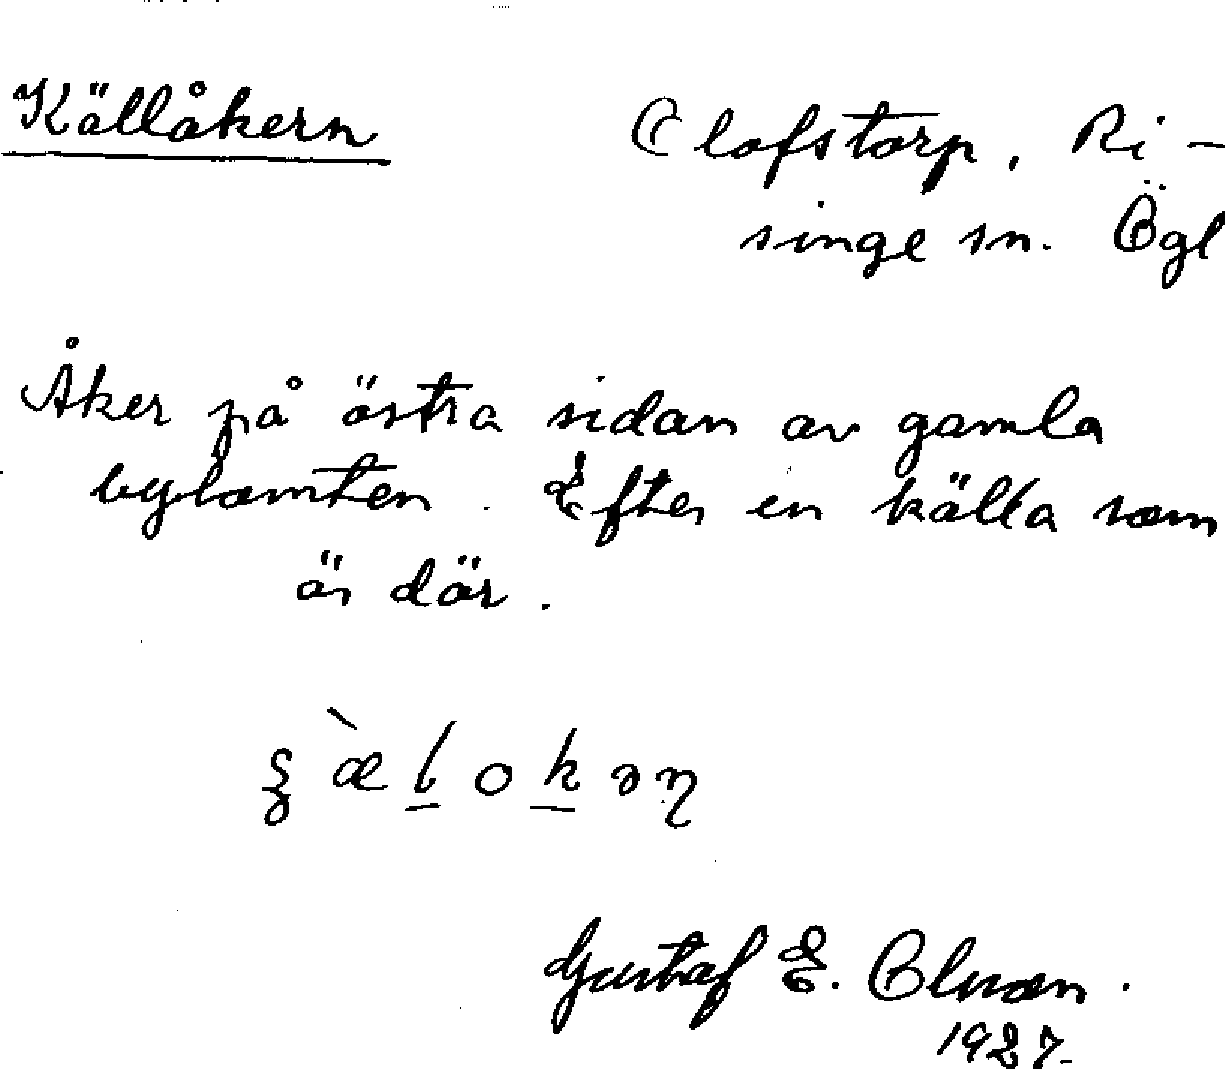 Källåkern
Olofstorp, Ri-
singe sn. Ögl
Åker på östra sidan av gamla
bytomten. Efter en källa som
är där.
Gustaf E. Olsson.
1927.